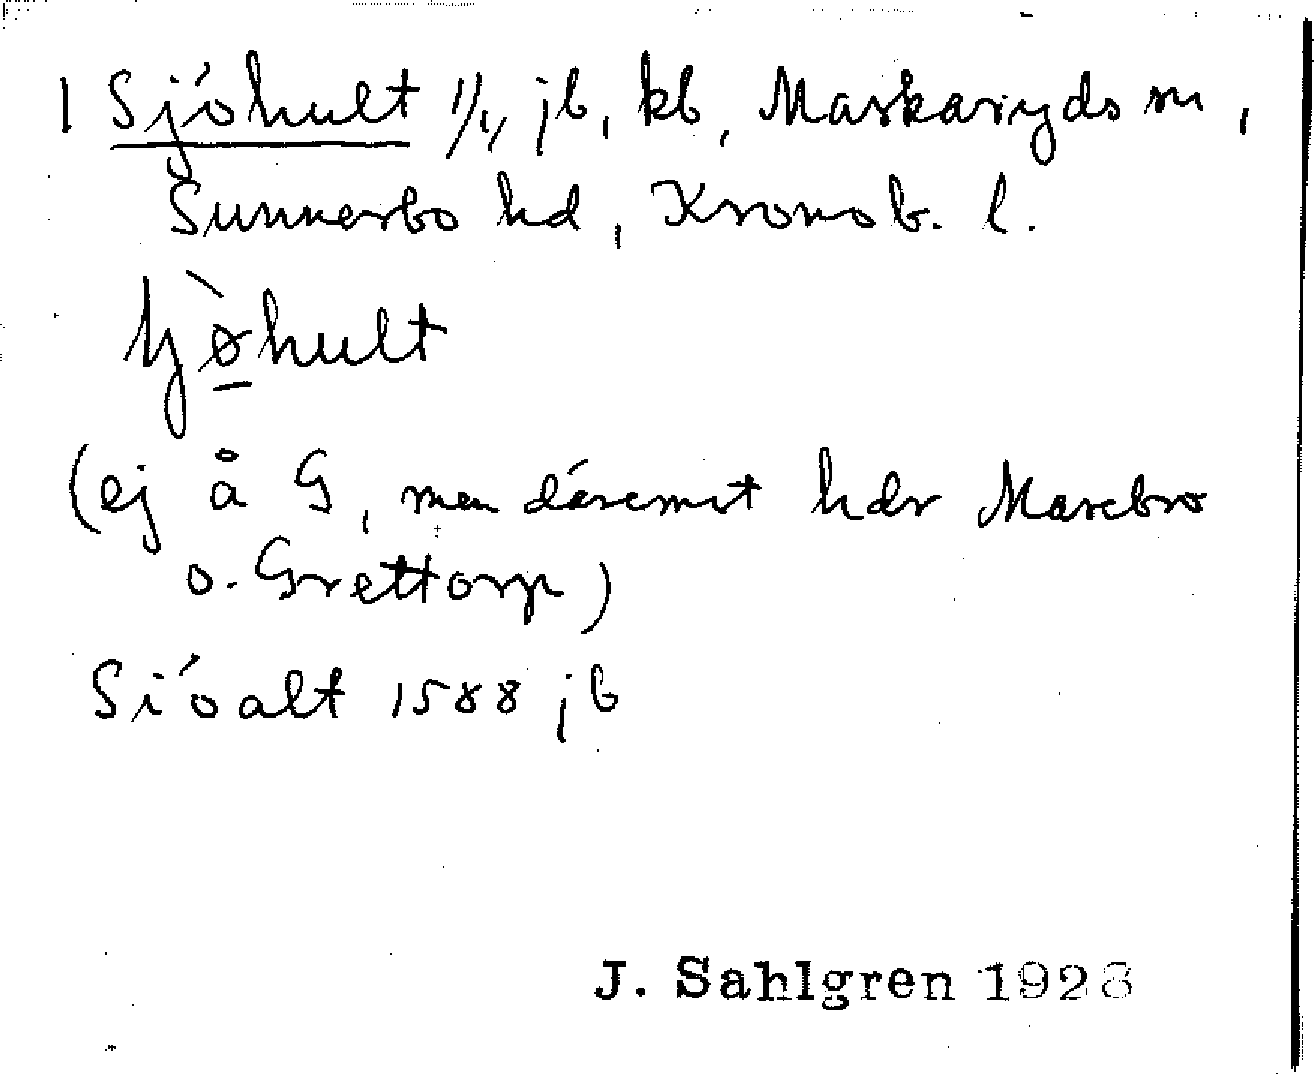 1 Sjöhult 1/1, jb, kb, Markaryds sn,
Sunnerbo hd, Kronob. l.
hjø̀hult
(ej å G, men däremot hdr Marebro
o. Grettorp)
Siöalt 1588 jb
J. Sahlgren 1928